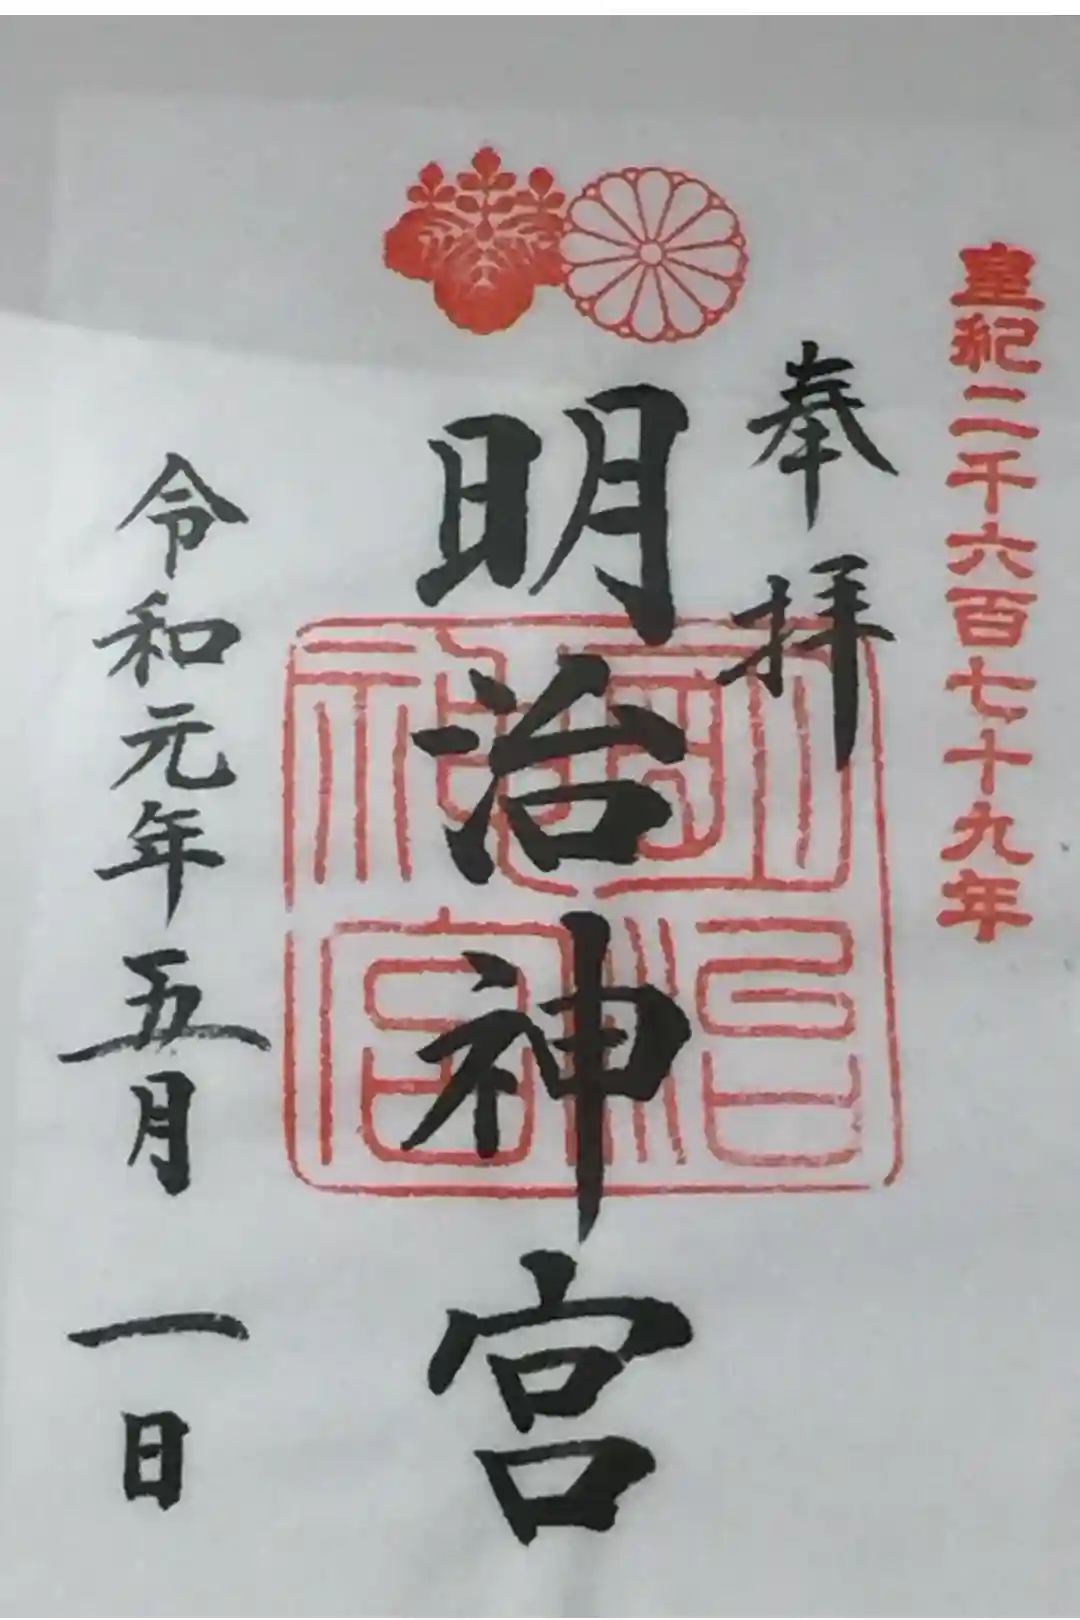 皇紀二千六百七十九年
奉拝
明治神宮
明治神宮
令和元年五月一日